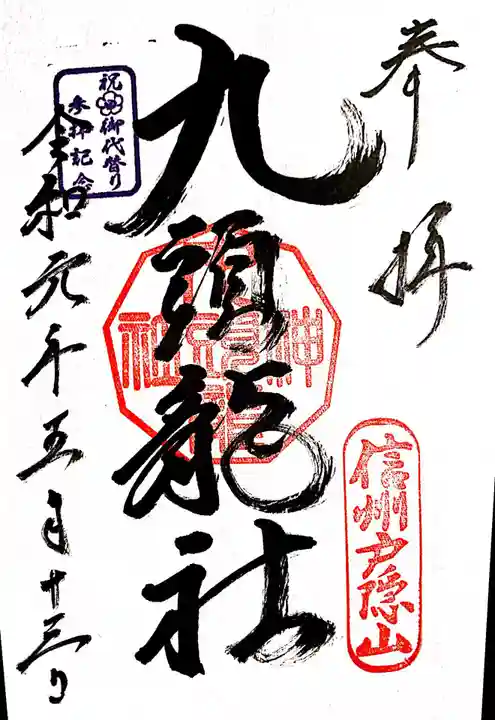 奉拝
信州戸隠山
九頭龍社
祝 御代替り
参拝記念
令和元年五月十三日